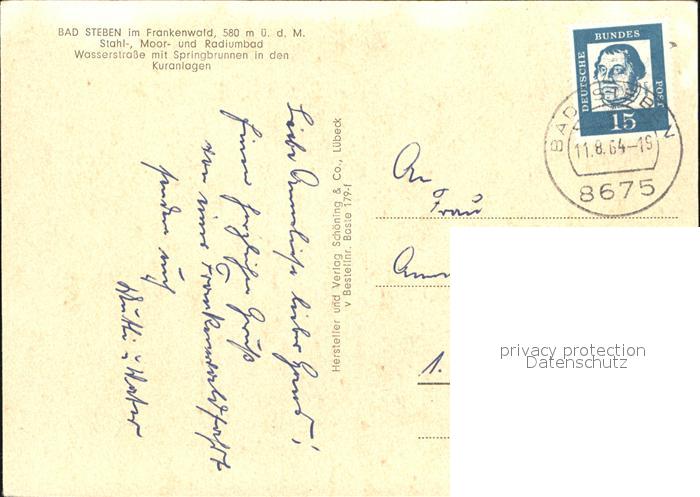 BAD STEBEN im Frankenwald, 580 m ü. d. M.
Stahl-, Moor- und Radiumbad
Wasserstraße mit Springbrunnen in den
Kuranlagen
DEUTSCHE
BUNDES
POST
15
BAD STEBEN
11.8.64-15
8675
Liebe Anneliese, lieber Hans!
Einen herzlichen Gruß
von einer Frankenwaldfahrt
senden euch
Mutti u. Vater
Hersteller und Verlag Schöning & Co., Lübeck
V Bestellnr. Baste 179-f
An
Frau
1.
privacy protection
Datenschutz